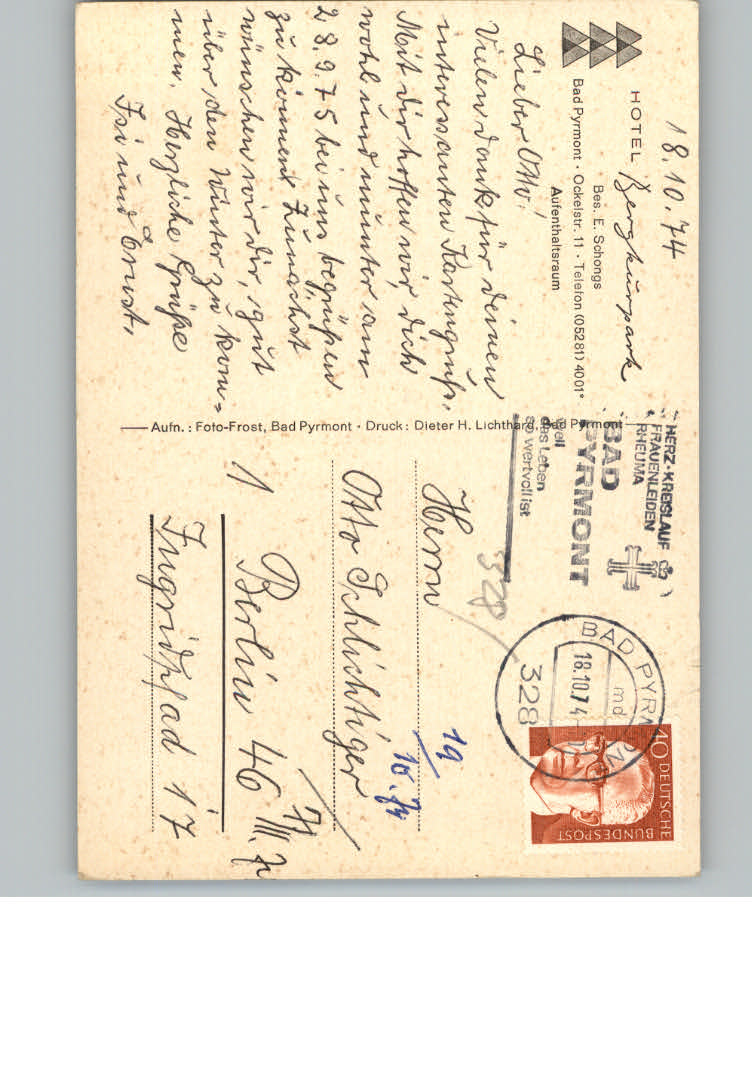 18.10.74
HOTEL Bergkurpark
Bes. E. Schongs
Bad Pyrmont · Ockelstr. 11 · Telefon (05281) 4001*
Aufenthaltsraum
Lieber Otto!
Vielen Dank für deinen
interessanten Kartengruß.
Mit dir hoffen wir, dich
wohl und munter am
28.9.75 bei uns begrüßen
zu können! Zunächst
wünschen wir dir, gut
über den Winter zu kom-
men. Herzliche Grüße
und Ernst.
Aufn.: Foto-Frost, Bad Pyrmont · Druck: Dieter H. Lichthard, Bad Pyrmont
HERZ-KREISLAUF
FRAUENLEIDEN
RHEUMA
BAD
PYRMONT
weil
das Leben
so wertvoll ist
328
BAD PYRMONT
md
18.10.74
328
40 DEUTSCHE
BUNDESPOST
Herrn
Otto Schlichtiger
1 Berlin 46
Ingridpfad 17
19
10.74